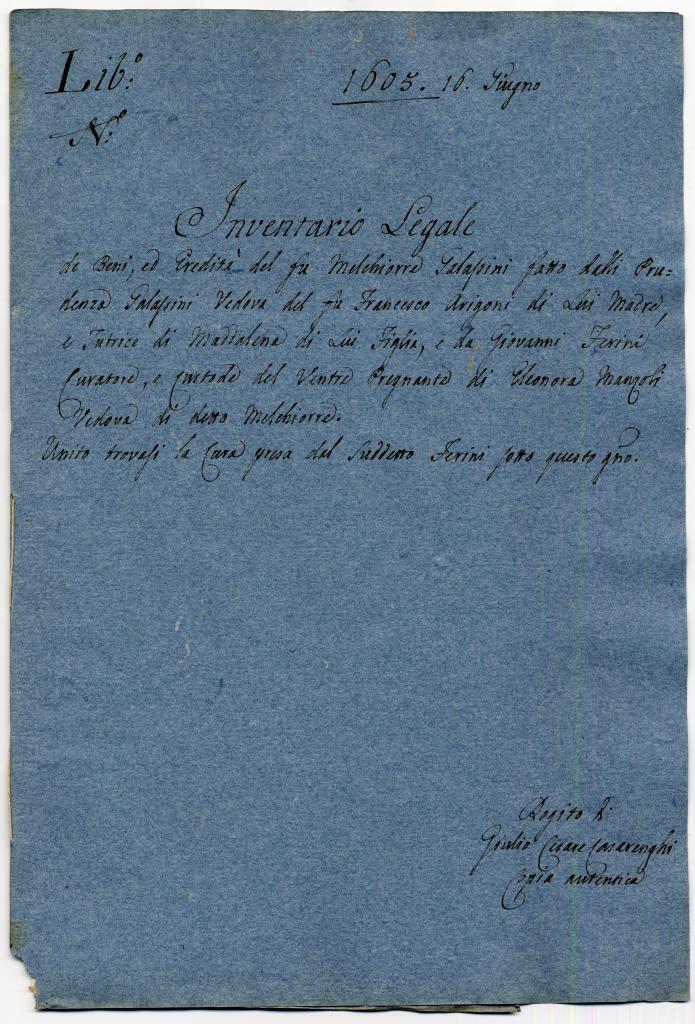 Lib.º
1605. 16. Giugno
N.º
Inventario Legale
de Beni, ed Eredità del fu Melchiorre Galassini fatto dalli Pru=
denza Galassini Vedova del fu Francesco Arigoni di Lui Madre,
e Tutrice di Maddalena di Lui Figlia, e da Giovanni Ferini
Curatore, e Custode del Ventre Pregnante di Eleonora Manzoli
Vedova di detto Melchiorre.
Unito trovasi la Cura presa dal Suddetto Ferini sotto questo gno.
Rogito di
Giulio Cesare
Copia autentica